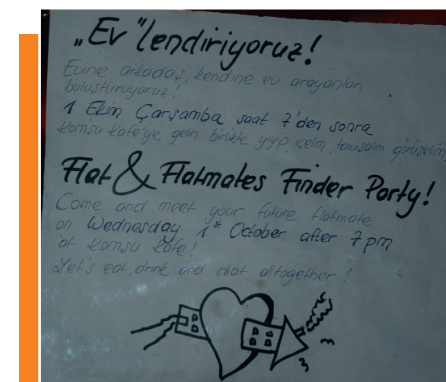 „Ev"lendiriyoruz!
Evine arkadaş, kendine ev arayanları
buluşturuyoruz!
1 Ekim Çarşamba saat 7'den sonra
Komşu Kafe'ye gelin birlikte yiyip içelim, tanışalım görüşelim
Flat & Flatmates Finder Party!
Come and meet your future flatmate
on Wednesday 1st October after 7 pm
at Komşu Kafe!
Let's eat, drink and chat alltogether!